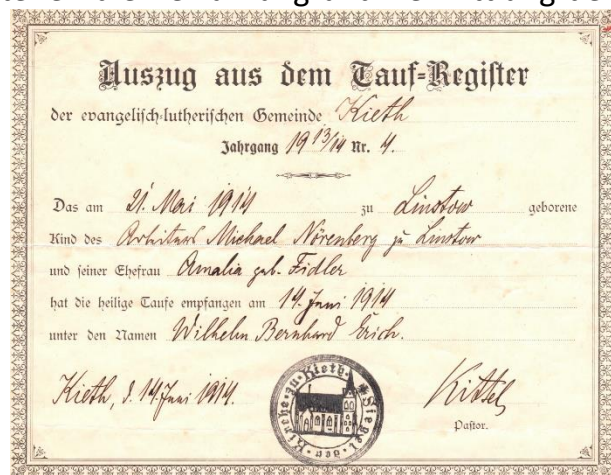 Auszug aus dem Tauf-Register
der evangelisch-lutherischen Gemeinde Kieth
Jahrgang 1913/14 Nr. 4.
Das am 21. Mai 1914 zu Linstow geborene
Kind des Arbeiters Michael Nörenberg zu Linstow
und seiner Ehefrau Amalia geb. Fidler
hat die heilige Taufe empfangen am 14. Juni 1914
unter den Namen Wilhelm Bernhard Erich.
Kieth, d. 14. Juni 1914.
Siegel der Kirche zu Kieth
Kittel
Pastor.